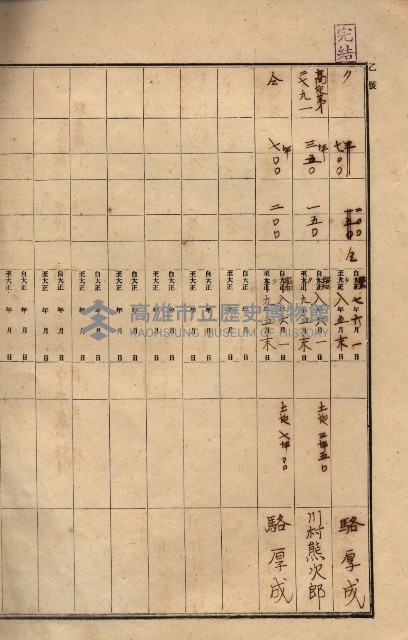 完結
乙號
〃
七坪〇〇
二〇〇
仝
自大正 七年六月一日
至大正 八年五月末日
駱厚成
高地第二七九一
三坪五〇
一五〇
自大正 八年六月一日
至大正 九年五月末日
土地 三坪五〇
川村熊次郎
仝
七坪〇〇
二〇〇
自大正 八年六月一日
至大正 九年五月末日
土地 七坪〇〇
駱厚成
自大正 年 月 日
至大正 年 月 日
自大正 年 月 日
至大正 年 月 日
自大正 年 月 日
至大正 年 月 日
自大正 年 月 日
至大正 年 月 日
自大正 年 月 日
至大正 年 月 日
自大正 年 月 日
至大正 年 月 日
高雄市立歷史博物館
KAOHSIUNG MUSEUM OF HISTORY